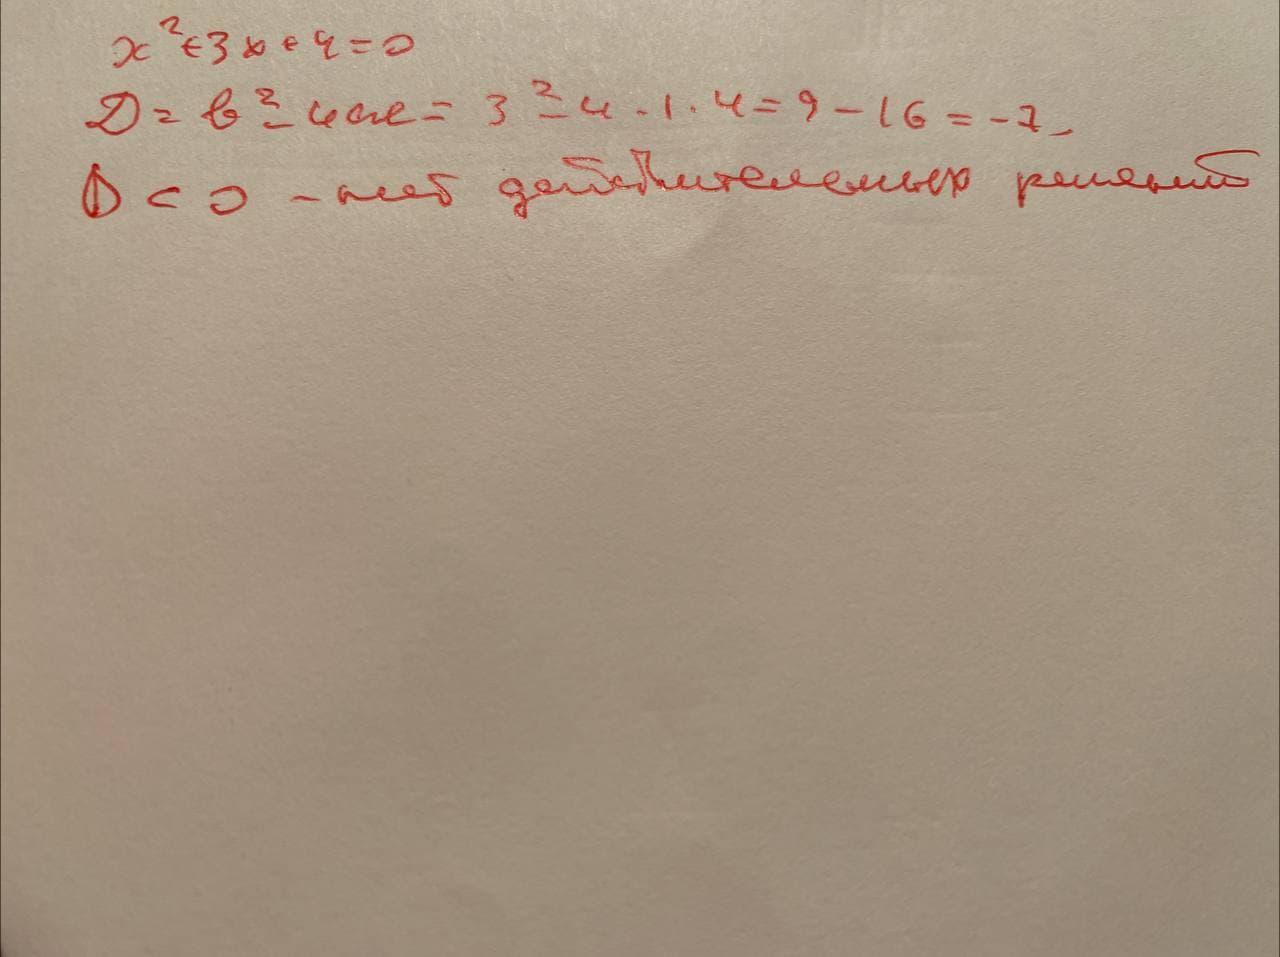 x²+3x+4=0
D = b²-4ac = 3²-4·1·4=9-16=-7
D < 0 - нет действительных решений